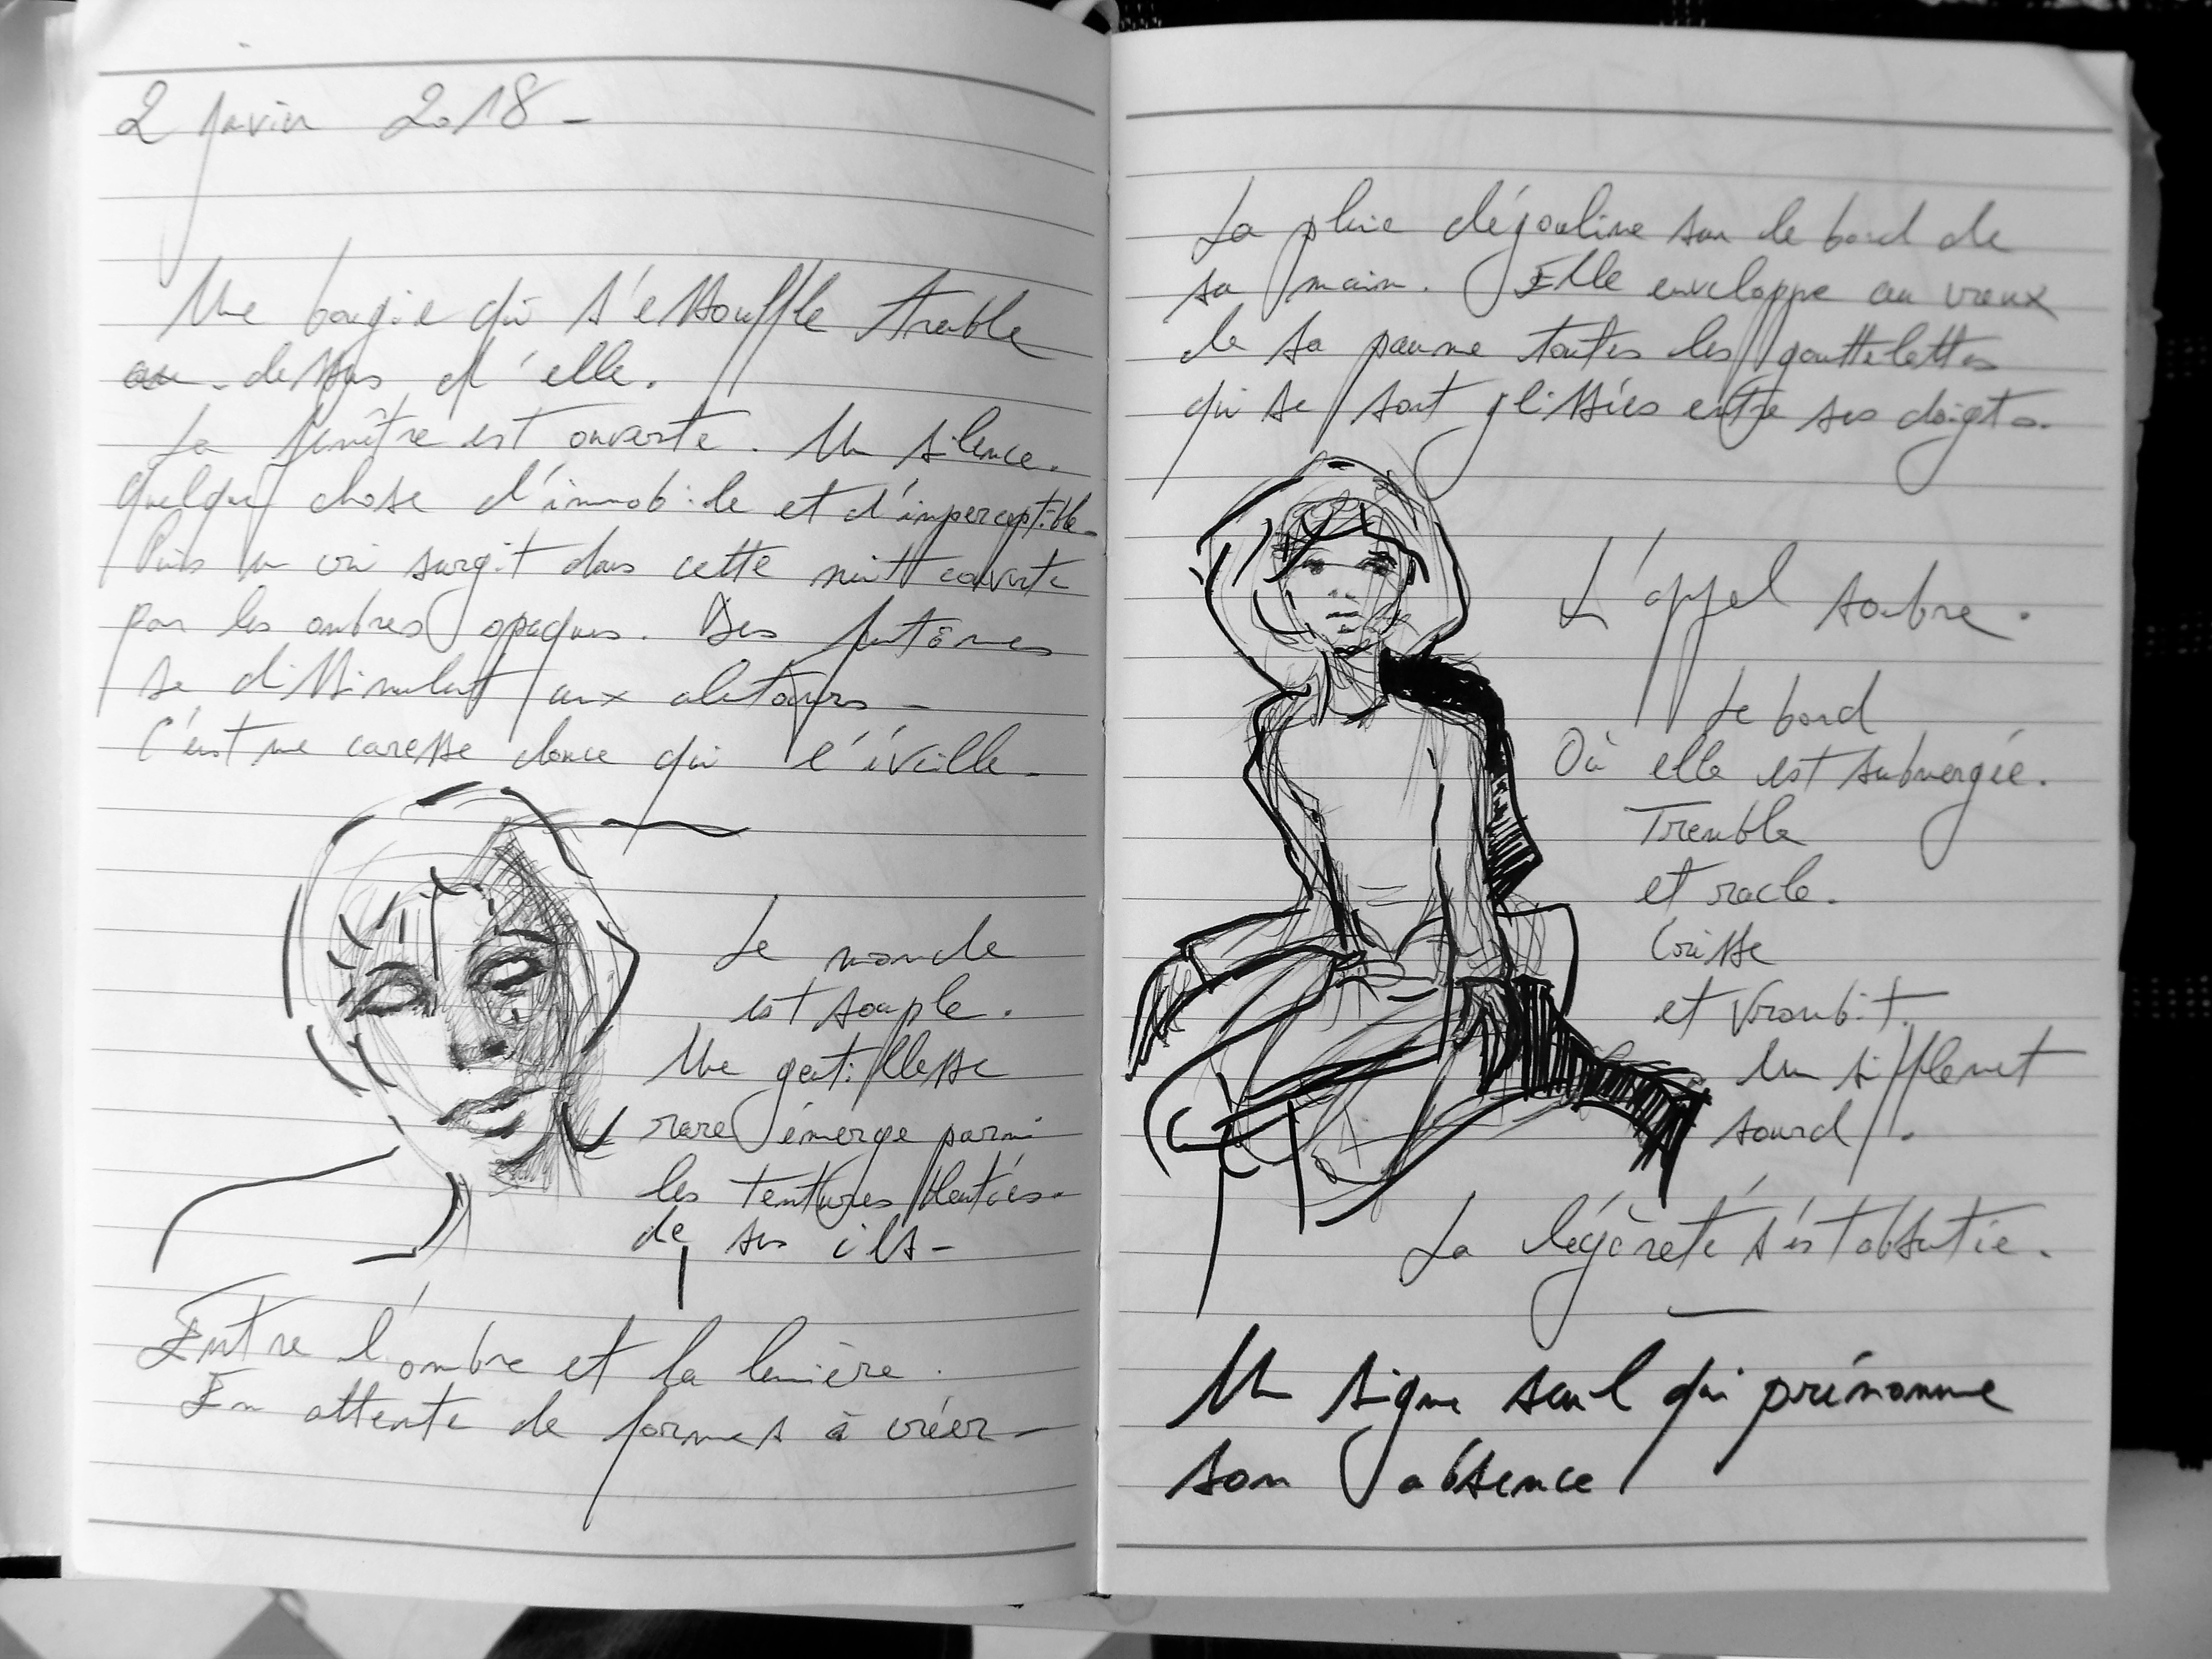 2 janvier 2018 -
Une bougie qui s'essouffle tremble
au-dessus d'elle.
La fenêtre est ouverte. Un silence.
Quelque chose d'immobile et d'imperceptible.
Puis un cri surgit dans cette nuit couverte
par les ombres opaques. Des fantômes
se dissimulent aux alentours -
C'est une caresse douce qui l'éveille.
Le monde
est souple.
Une gentillesse
rare émerge parmi
les tentures
de ses cils -
Entre l'ombre et la lumière.
En attente de formes à créer -
La pluie dégouline sur le bord de
sa main. Elle enveloppe au creux
de sa paume toutes les gouttelettes
qui se sont glissées entre ses doigts.
L'appel sombre.
Le bord
Où elle est submergée.
Tremble
et racle.
Crisse
et vrombit.
Un sifflement
sourd.
La légèreté s'est absentée.
Un signe seul qui prénomme
son absence